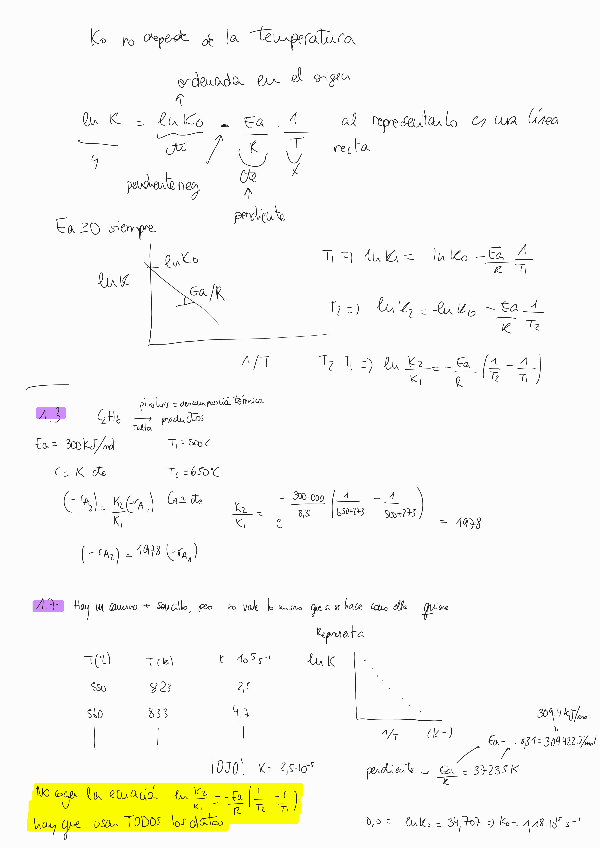 K₀ no depende de la temperatura
ordenada en el origen
ln K = ln K₀ - Ea/R · 1/T al representarlo es una línea recta
cte
y
pendiente neg
cte
x
pendiente
Ea ≥ 0 siempre
ln K
ln K₀
Ea/R
1/T
T₁ ⇒ ln K₁ = ln K₀ - Ea/R · 1/T₁
T₂ ⇒ ln K₂ = ln K₀ - Ea/R · 1/T₂
T₂ T₁ ⇒ ln K₂/K₁ = - Ea/R · (1/T₂ - 1/T₁)
1.3 C₂H₆ → productos
pirólisis = descomposición térmica
Ea = 300 kJ/mol T₁ = 500C
T₂ = 650°C
(-rA₂) = K₂/K₁ (-rA₁)
K₂/K₁ = e - 300 000/8,31 (1/650+273 - 1/500+273) = 1978
(-rA₂) = 1978 (-rA₁)
1.7. Hay un camino + sencillo, pero no vale lo mismo que si se hace como ella quiere
Representa
T(°C) T(K) K 10⁵ s⁻¹
550 823 2,5
560 833 4,7
ln K
1/T (K⁻¹)
¡OJO! K = 2,5·10⁻⁵
309,4 kJ/mol
Ea = 8,31 = 309422 J/mol
pendiente = Ea/R = 37235 K
No coger la ecuación ln K₂/K₁ = - Ea/R (1/T₂ - 1/T₁)
hay que usar TODOS los datos
0,0 = ln K₀ = 34,707 ⇒ K₀ = 1,18·10¹⁵ s⁻¹